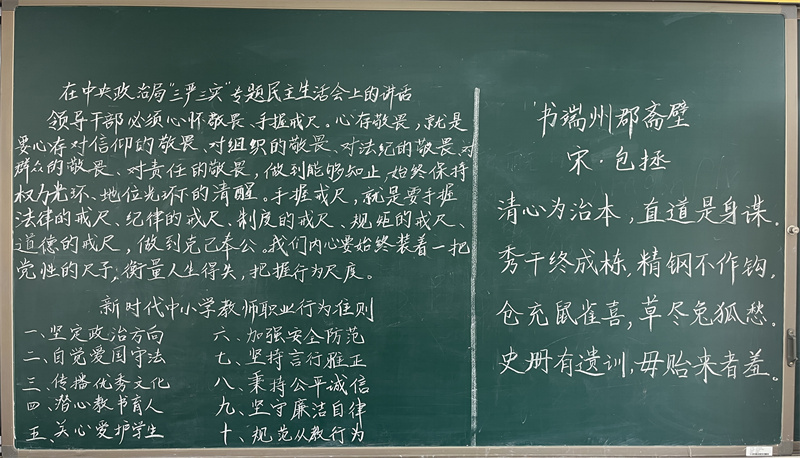 在中央政治局“三严三实”专题民主生活会上的讲话
领导干部必须心怀敬畏、手握戒尺。心存敬畏，就是
要心存对信仰的敬畏、对组织的敬畏、对法纪的敬畏、对
群众的敬畏、对责任的敬畏，做到能够知止，始终保持
权力光环、地位光环下的清醒。手握戒尺，就是要手握
法律的戒尺、纪律的戒尺、制度的戒尺、规矩的戒尺、
道德的戒尺，做到克己奉公。我们内心要始终装着一把
党性的尺子，衡量人生得失，把握行为尺度。
新时代中小学教师职业行为准则
一、坚定政治方向
二、自觉爱国守法
三、传播优秀文化
四、潜心教书育人
五、关心爱护学生
六、加强安全防范
七、坚持言行雅正
八、秉持公平诚信
九、坚守廉洁自律
十、规范从教行为
书端州郡斋壁
宋·包拯
清心为治本，直道是身谋。
秀干终成栋，精钢不作钩。
仓充鼠雀喜，草尽兔狐愁。
史册有遗训，毋贻来者羞。